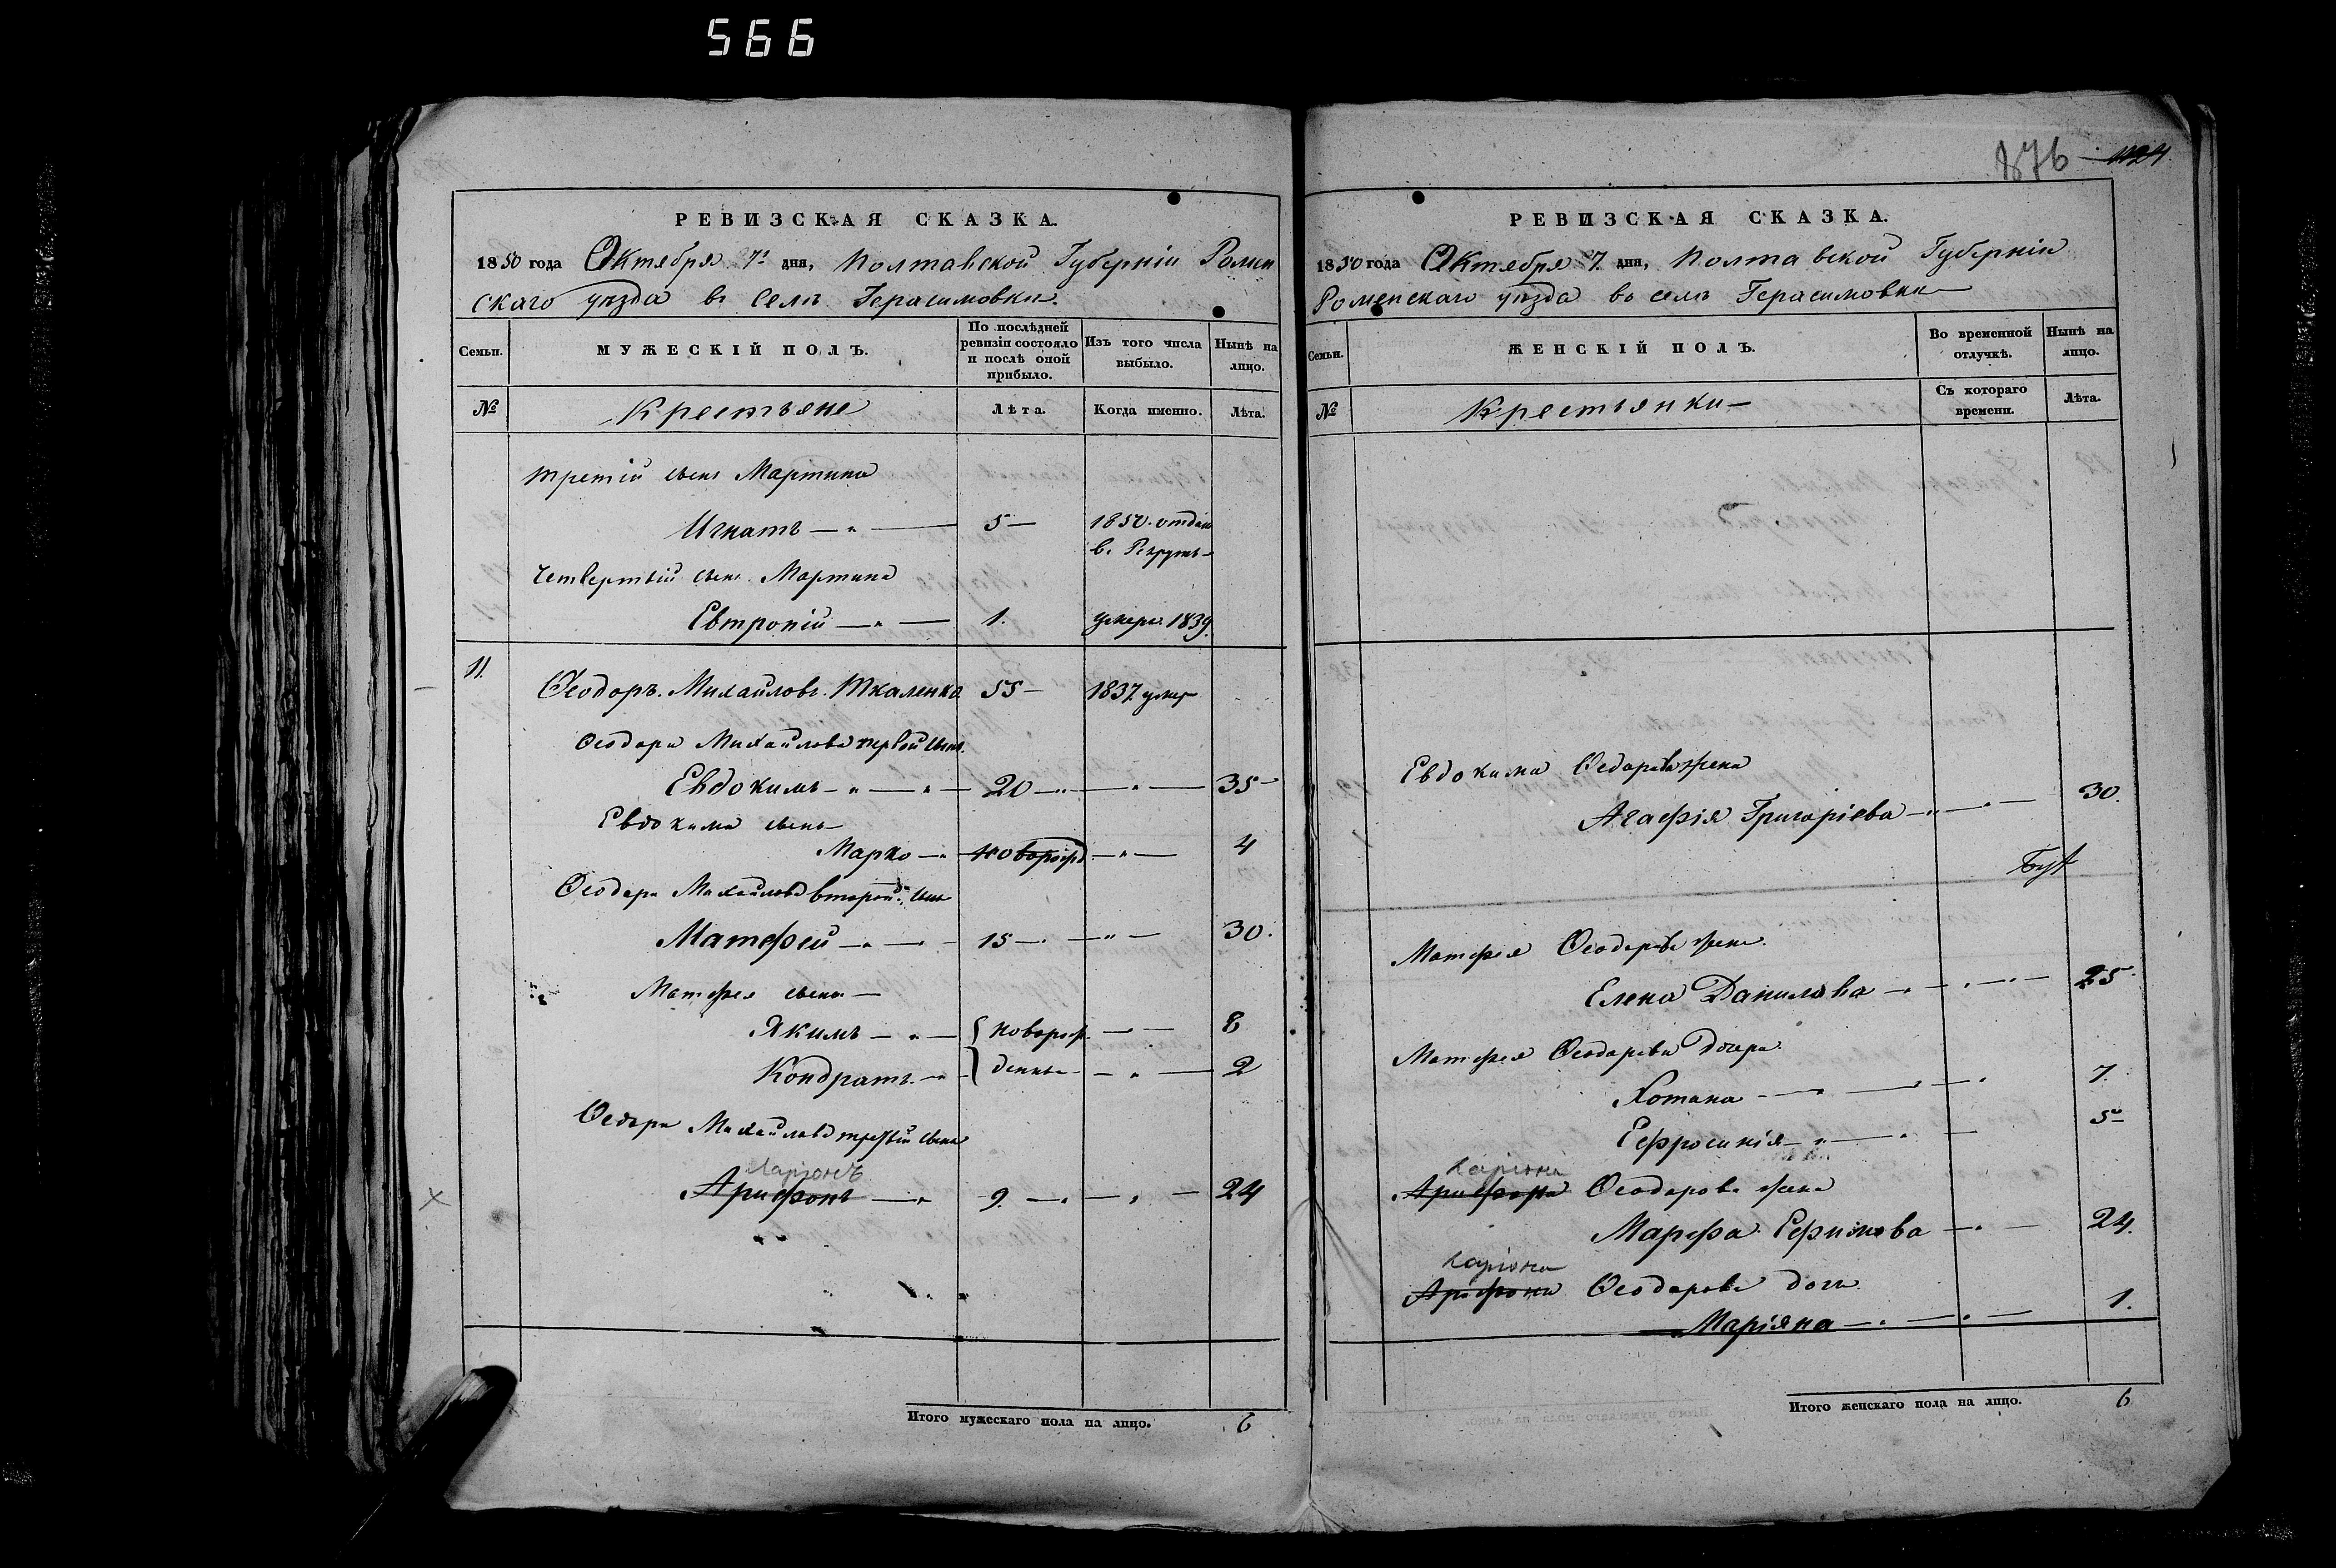 566
876 1124
РЕВИЗСКАЯ СКАЗКА.
1850 года Октября 7го дня, Полтавской Губерніи Ромен
скаго уѣзда въ Селѣ Герасимовки
Семьи.
МУЖЕСКІЙ ПОЛЪ.
По послѣдней ревизіи состояло и послѣ оной прибыло.
Изъ того числа выбыло.
Нынѣ на лицо.
№ Крестьяне Лѣта. Когда именно. Лѣта.
третій сынъ Мартина
Игнатъ 5 1850 отданъ
въ Рекруты
Четвертый сынъ Мартина
Евтропій 1. умеръ 1839
11. Ѳеодоръ Михайловъ Ткаленко 55 1837 умер
Ѳеодора Михайлова первой сынъ
Евдокимъ 20 35
Евдокима сынъ
Марко новорожд 4
Ѳеодора Михайлова второй сынъ
Матфей 15 30.
Матфея сыны
Якимъ новорож 8
Кондратъ денные 2
Ѳедора Михайлова третій сынъ
Ларіонъ
Арифонъ 9. 24
Итого мужескаго пола на лицо. 6
РЕВИЗСКАЯ СКАЗКА.
1850 года Октября 7 дня, Полтавской Губерніи
Роменскаго уѣзда въ селѣ Герасимовки
Семьи.
ЖЕНСКІЙ ПОЛЪ.
Во временной отлучкѣ.
Нынѣ на лицо.
№ Крестьянки Съ котораго времени. Лѣта.
Евдокима Ѳедорова жена
Агафія Григоріева 30.
Матфея Ѳеодорова жена
Елена Данилова 25
Матфея Ѳеодорова дочери
Хотина 7.
Ефросинія 5
Ларіона
Арифона Ѳеодорова жена
Марфа Ефимова 24.
Ларіона
Арифона Ѳеодорова дочь
Маріяна 1.
Итого женскаго пола на лицо. 6